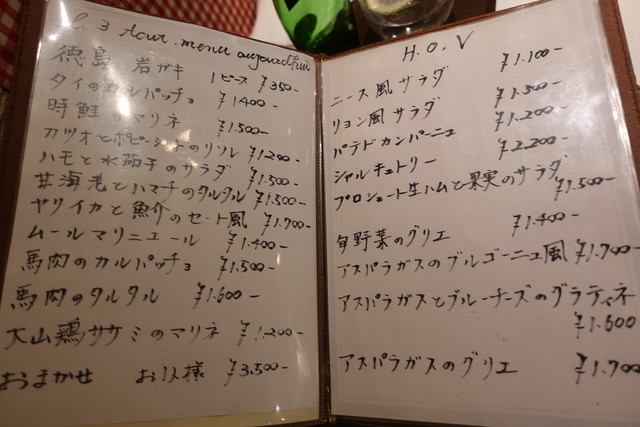 menu aujourd'hui
徳島 岩ガキ 1ピース ¥350-
タイのカルパッチョ ¥1400-
時鮭のマリネ ¥1.500-
カツオと のリソレ ¥1.200-
ハモと水茄子のサラダ ¥1.500-
甘海老とハマチのタルタル ¥1.500-
ヤリイカと魚介のセート風 ¥1.700-
ムールマリニエール ¥1.400-
馬肉のカルパッチョ ¥1.500-
馬肉のタルタル ¥1.600-
大山鶏ササミのマリネ ¥1.200-
おまかせ お1人様 ¥3.500-
H.O.V
ニース風サラダ ¥1.100-
リヨン風サラダ ¥1.300-
パテドカンパーニュ ¥1.200-
シャルキュトリー ¥2.200-
プロシュート生ハムと果実のサラダ ¥1.500-
旬野菜のグリエ ¥1.400-
アスパラガスのブルゴーニュ風 ¥1.700-
アスパラガスとブルーチーズのグラティネ
¥1.600
アスパラガスのグリエ ¥1.700